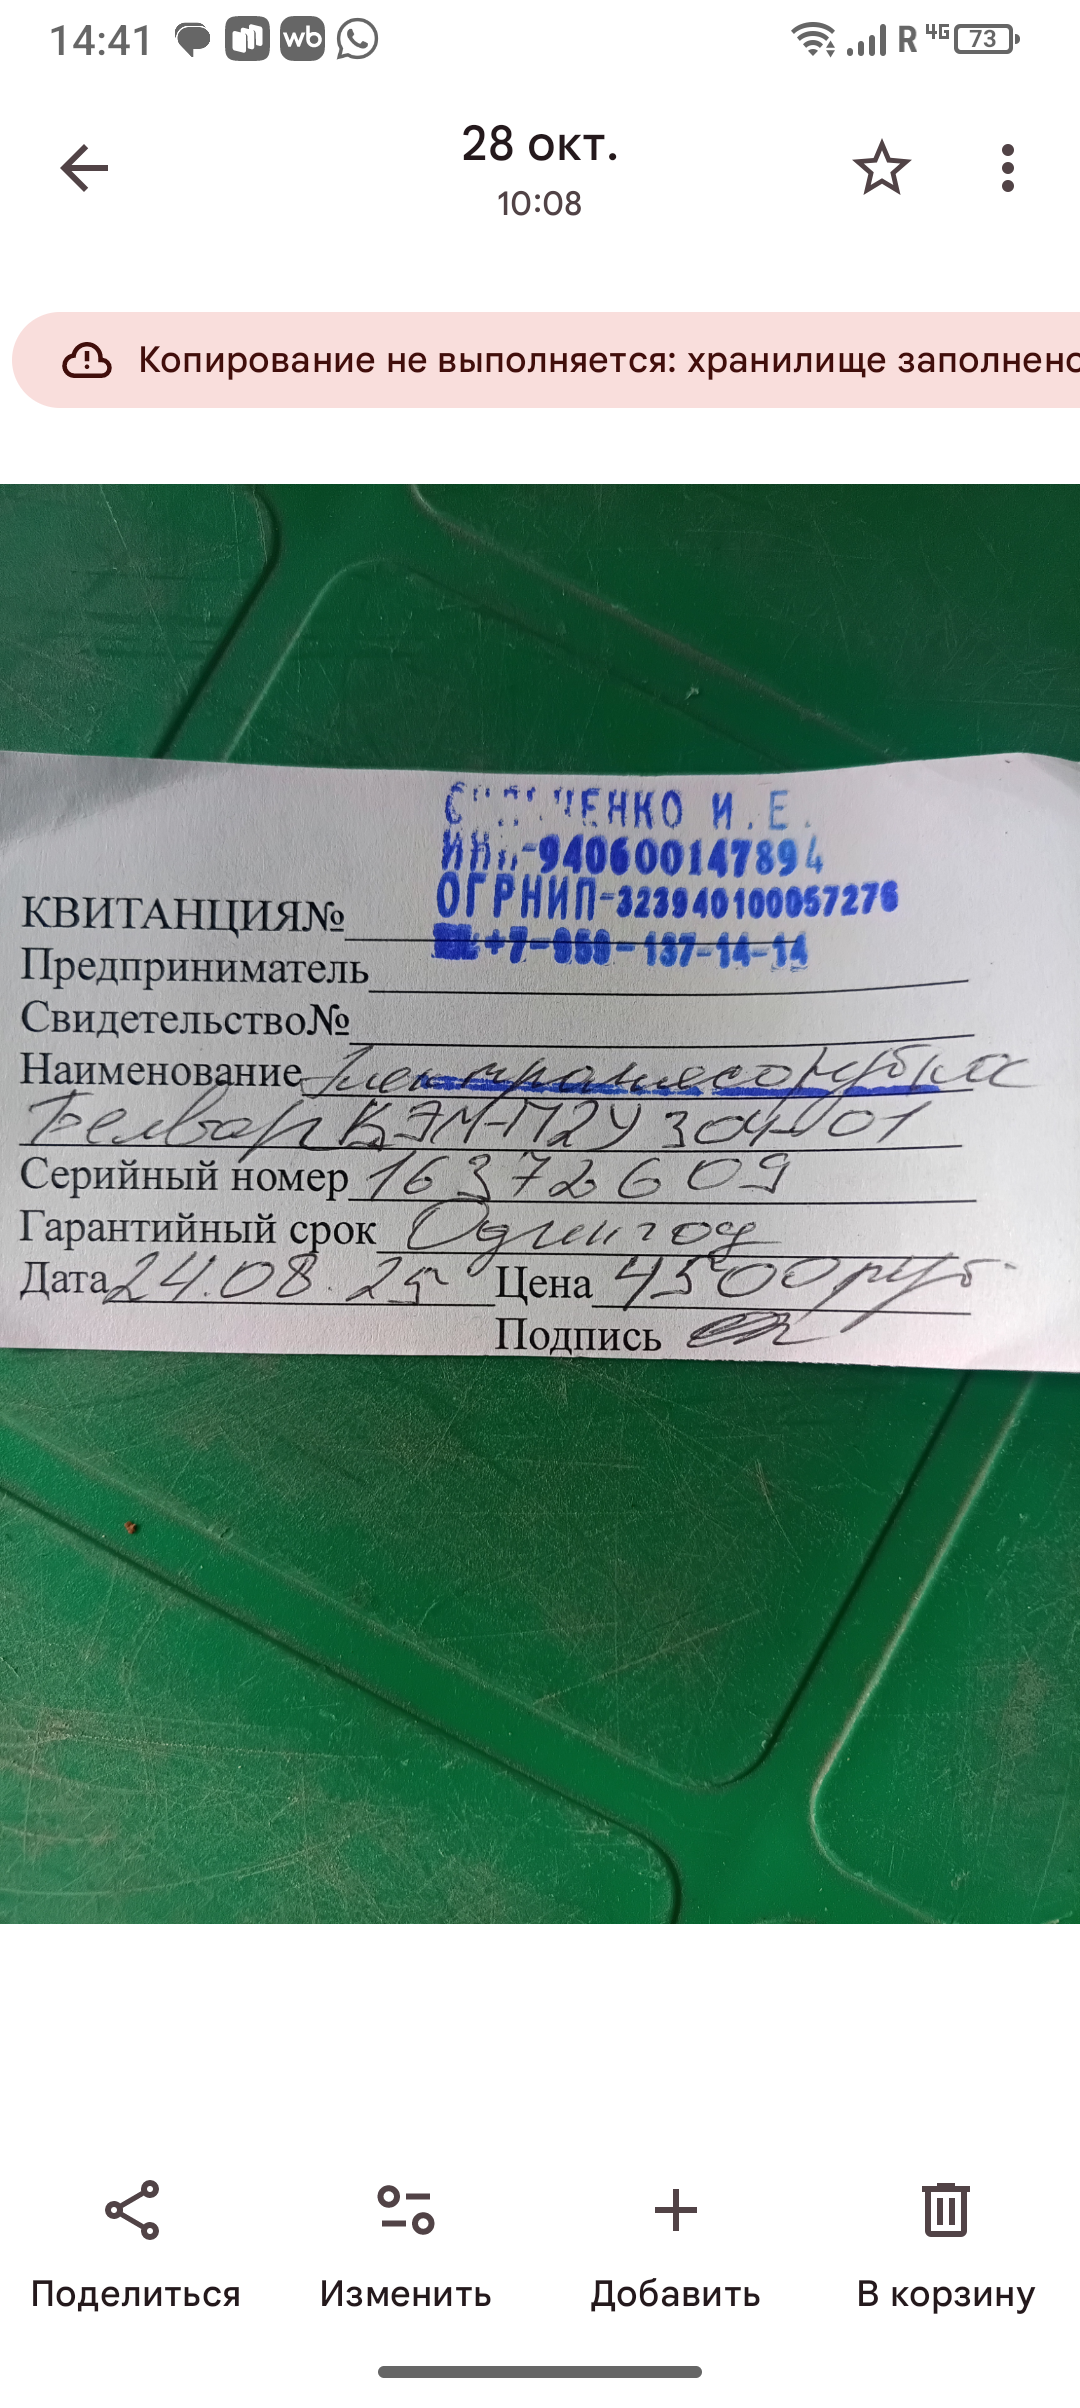 14:41
wb
R 4G 73
28 окт.
10:08
Копирование не выполняется: хранилище заполнено
ЕНКО И.Е.
ИНН-940600147894
ОГРНИП-323940100057276
КВИТАНЦИЯ№
+7-959-137-14-14
Предприниматель
Свидетельство№
Наименование Электромясорубка
Белвар КЭМ-П2У 304-01
Серийный номер 16372609
Гарантийный срок Один год
Дата 24.08.25 Цена 4500 руб.
Подпись
Поделиться Изменить Добавить В корзину